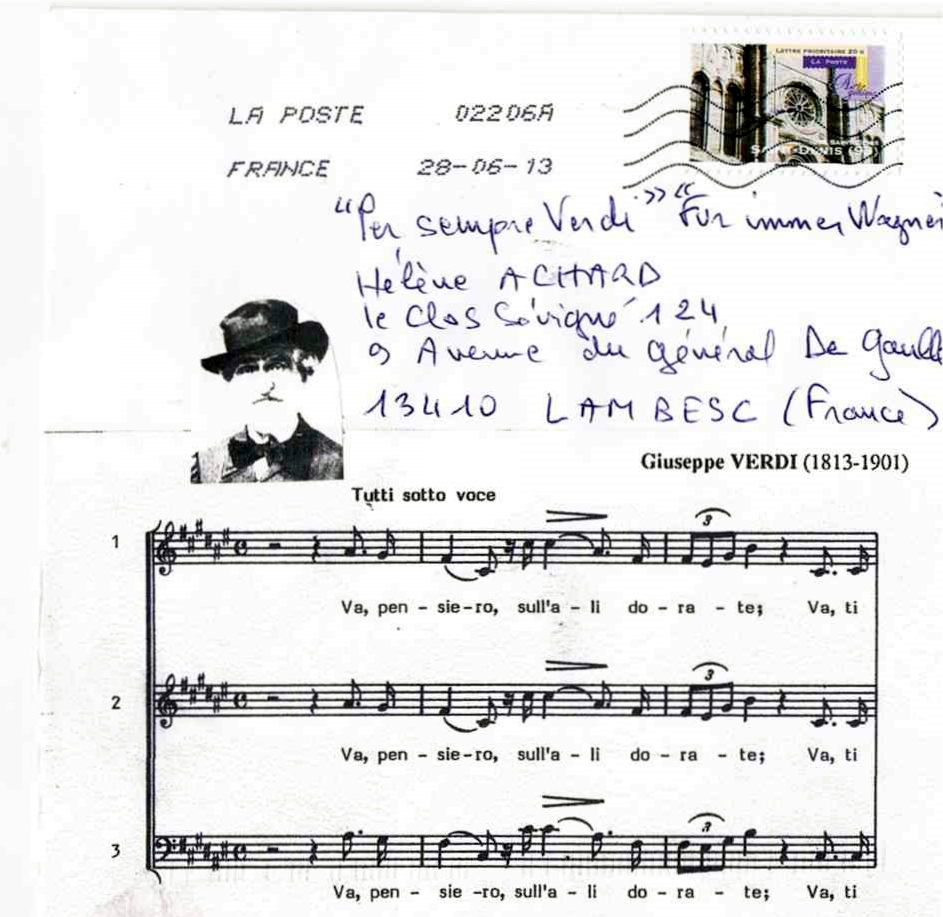 LETTRE PRIORITAIRE 20 g
LA POSTE
LA POSTE 02206A
SAINT-DENIS (93)
FRANCE 28-06-13
"Per sempre Verdi" "Für immer Wagner
Hélène ACHARD
le Clos Sévigné 124
9 Avenue du général De Gaulle
13410 LAMBESC (France)
Giuseppe VERDI (1813-1901)
Tutti sotto voce
3
1
Va, pen - sie-ro, sull'a - li do - ra - te; Va, ti
3
2
Va, pen - sie-ro, sull'a - li do - ra - te; Va, ti
3
3
Va, pen - sie -ro, sull'a - li do - ra - te; Va, ti